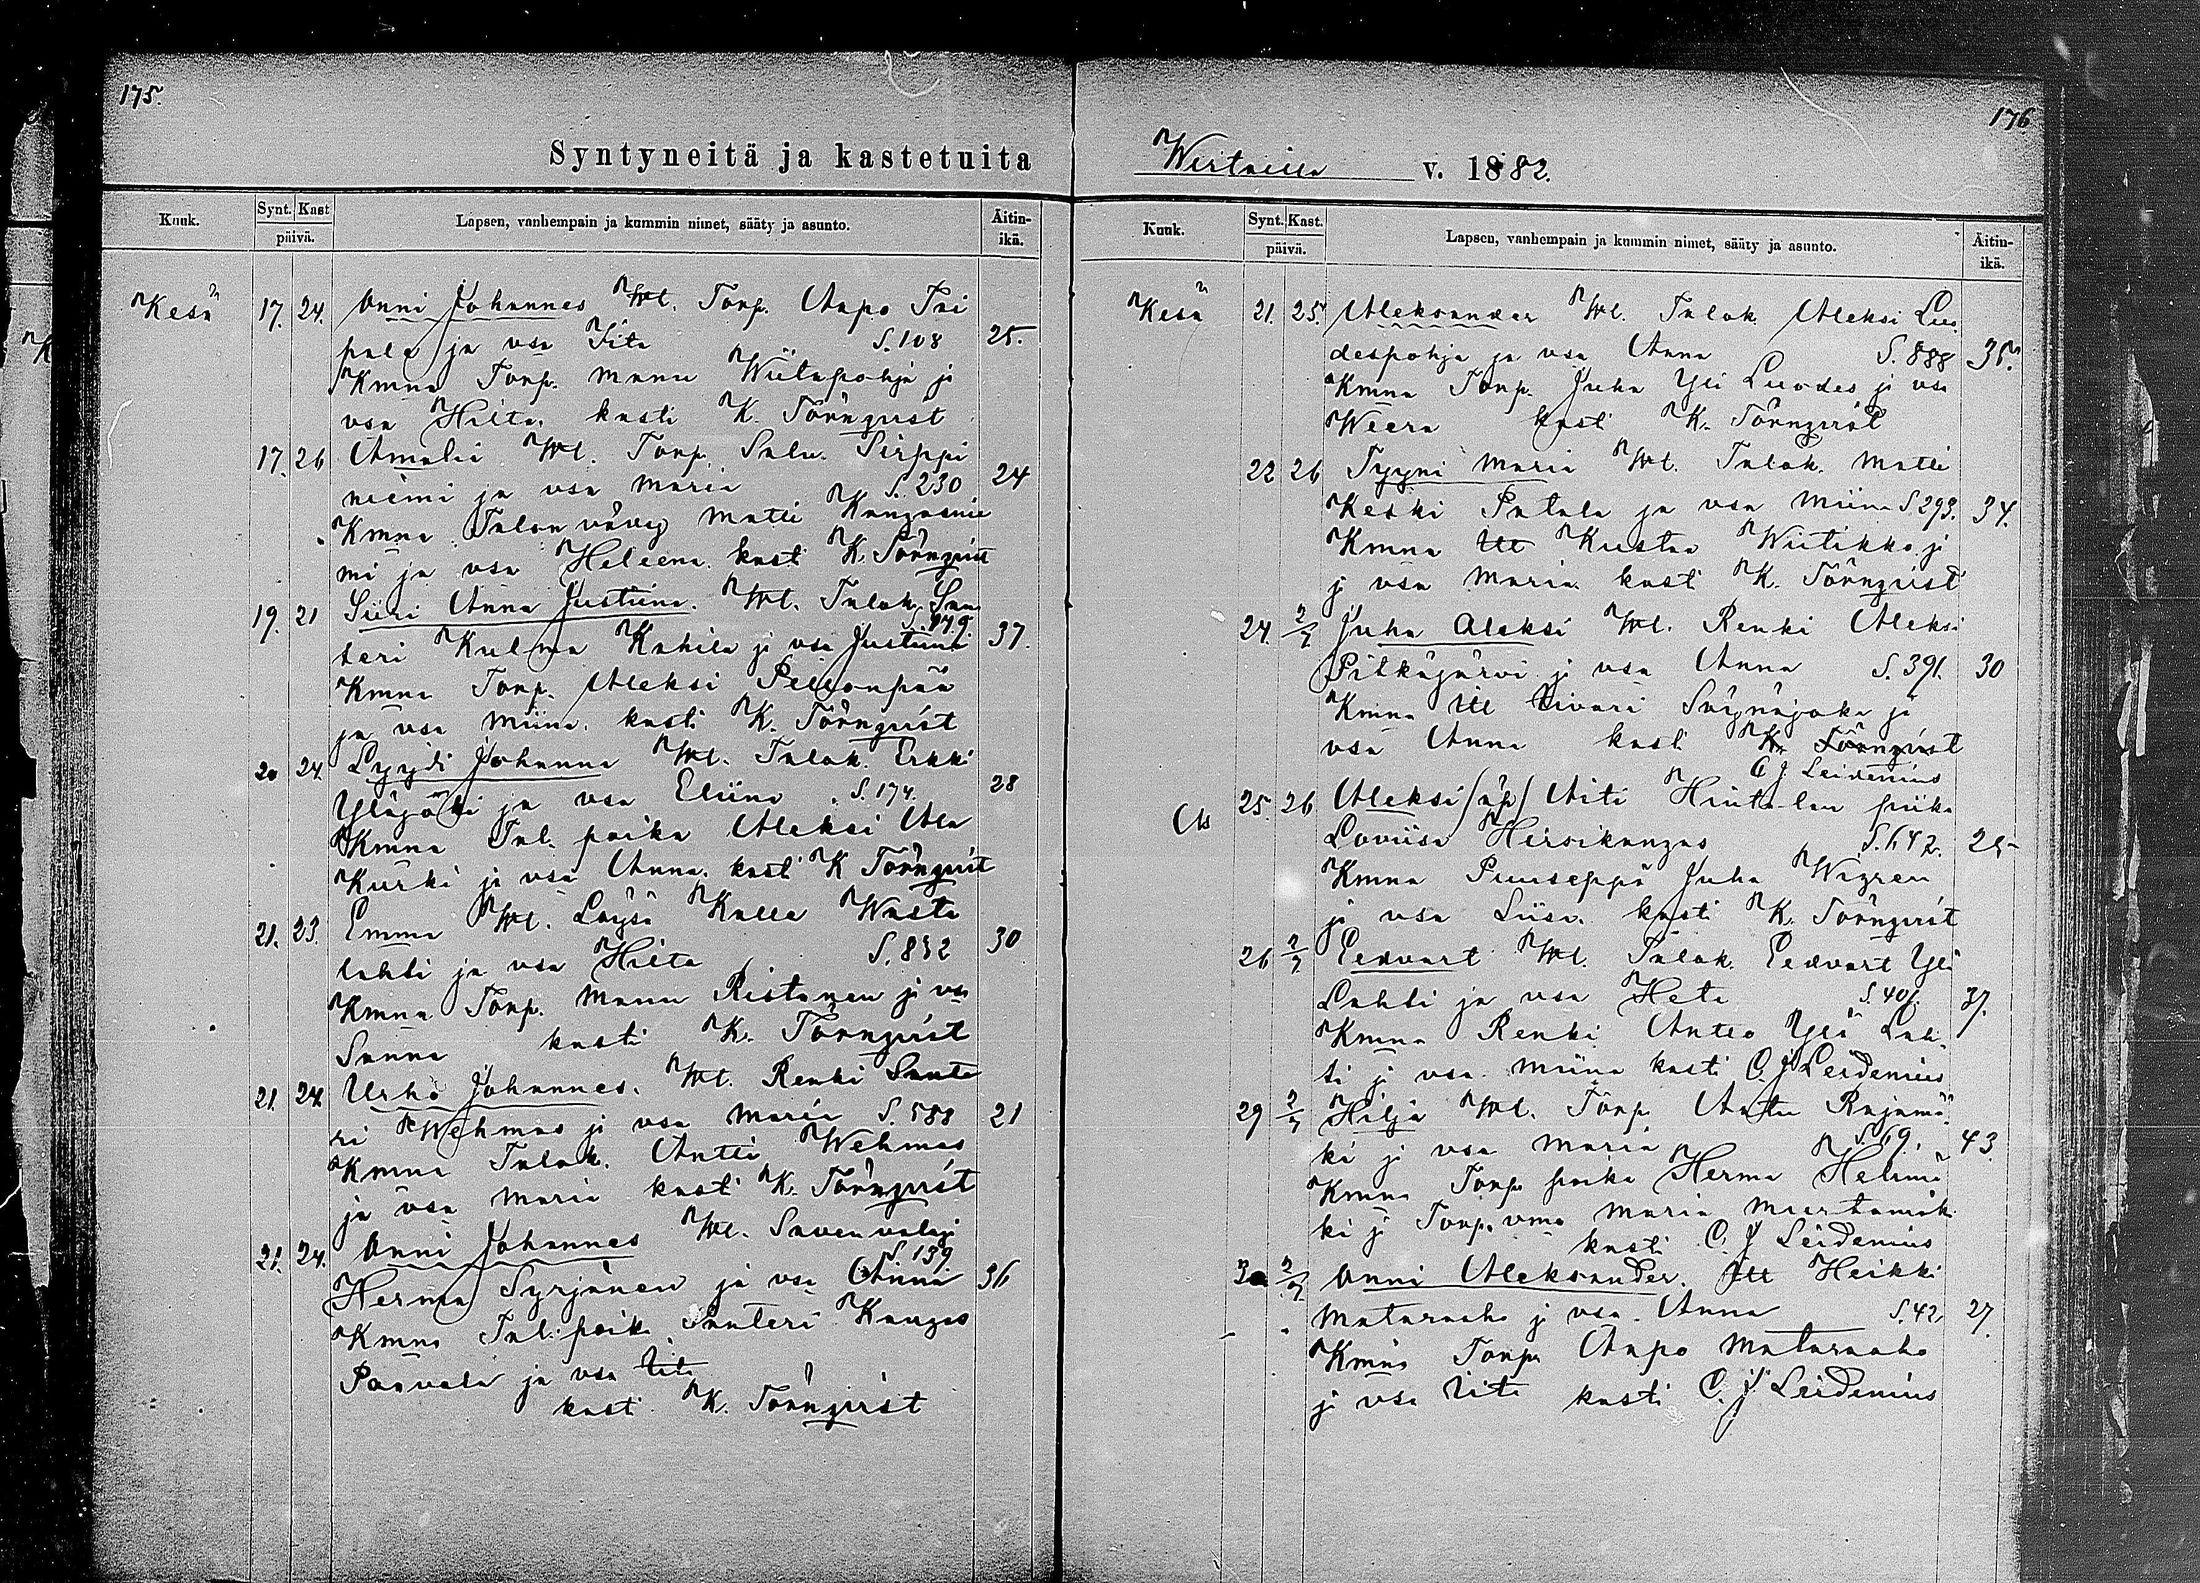 175.
Syntyneitä ja kastetuita
Kuuk.
Synt. Kast
päivä.
Lapsen, vanhempain ja kummin nimet, sääty ja asunto.
Äitin-
ikä.
Kesä 17. 24. Onni Johannes Torp. Aapo
ja vsa Iita S. 108 25.
Kmna Torp. Manu Wiitapohja j
vsa Hilta, kasti K. Törnqvist
17. 26 Amalia Torp. Salu. Sirppi
niemi ja vsa Maria S. 230 24
Kmna Talon vävy Matti Kangasnie
mi ja vsa Heleena. kast K. Törnqvist
19. 21 Siiri Anna Justiina. Talok. San
S. 179.
teri Kulma Kahila j vsa Justiina 37.
Kmna Torp. Aleksi Peltonpää
ja vsa Miina. kasti K. Törnqvist
20 24. Lyydi Johanna Talok. Erkki
Yläjoki ja vsa Eliina S. 174. 28
Kmna Tal. poika Aleksi Ala
Kurki ja vsa Anna. kast K Törnqvist
21. 23. Emma Löysä Kalle Wasta
lahti ja vsa Hilta S. 832 30
Kmna Torp. Manu Ristanen j vsa
Sanna kasti K. Törnqvist
21. 24. Urho Johannes. Renki Sante
ri Wehmas j vsa Maria S. 588 21
Kmna Talok. Antti Wehmas
ja vsa Maria kasti K. Törnqvist
21. 24. Onni Johannes Savenvalaj
S. 139
Herma Syrjänen ja vsa Anna 36
Kmna Tal. poika Santeri Kangas
Paavala ja vsa Iita
kast K. Törnqvist
176
v. 1882.
Kuuk.
Synt. Kast.
päivä.
Lapsen, vanhempain ja kummin nimet, sääty ja asunto.
Äitin-
ikä.
Kesä 21. 25. Aleksander Talok. Aleksi Luo
despohja ja vsa Anna S. 888
Kmna Torp. Juha Yli Luodes j vsa
Weera kast K. Törnqvist
22 26 Tyyni Maria Talok. Matti
Keski Patala ja vsa Miina S 293. 34.
Kmna Itl Kustaa Wiitikko j
j vsa Maria kast K. Törnqvist
24. 2/7 Juha Aleksi Renki Aleksi
Pitkäjärvi j vsa Anna S. 391. 30
Kmna Itl Iivari Säynäjoka ja
vsa Anna kasti K. Törnqvist
C J Leidenius
25. 26 Aleksi /äp/ Äiti Hintalan piika
Loviisa Hirsikangas S. 642.
Kmna Puuseppä Juha Wigren
j vsa Liisa. kasti K. Törnqvist
26 2/7 Eedvart Talok. Eedvart Yli
Lahti ja vsa Heta S. 401. 37.
Kmna Renki Anteo Yli Lah-
ti j vsa Miina kasti C. J Leidenius
29 2/7 Hilja Torp. Antu Rajamä-
ki j vsa Maria S. 69. 43
Kmna Torp poika Herma Helimä
ki j Torp. vmo Maria
kasti C. J Leidenius
30 2/7 Onni Aleksander. Itl Heikki
Mataraaho j vsa Anna S. 42 27.
Kmna Torp Aapo Mataraaho
j vsa Iita kasti C. J Leidenius